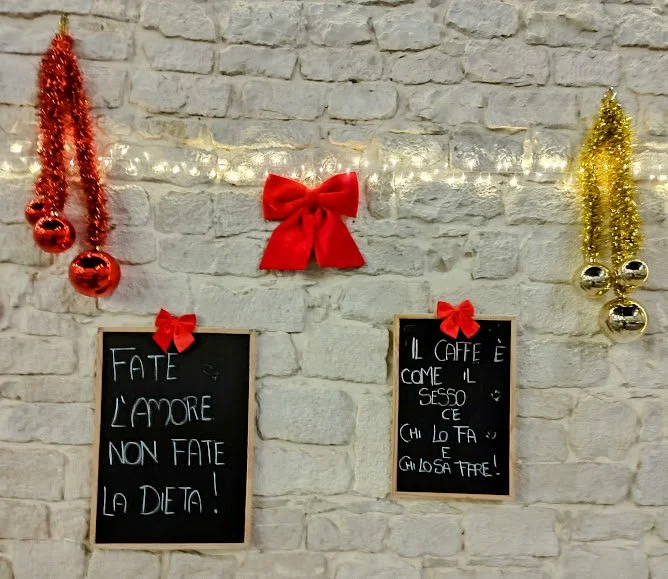 FATE
L'AMORE
NON FATE
LA DIETA!
IL CAFFE È
COME IL
SESSO
CE
CHI LO FA
E
CHI LO SA FARE!